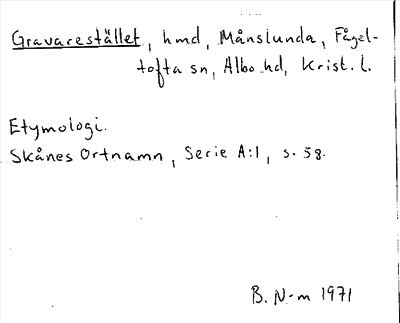 Gravarestället, hmd, Månslunda, Fågel-
tofta sn, Albo hd, Krist. l.
Etymologi.
Skånes Ortnamn, Serie A:1, s. 58.
B. N-m 1971